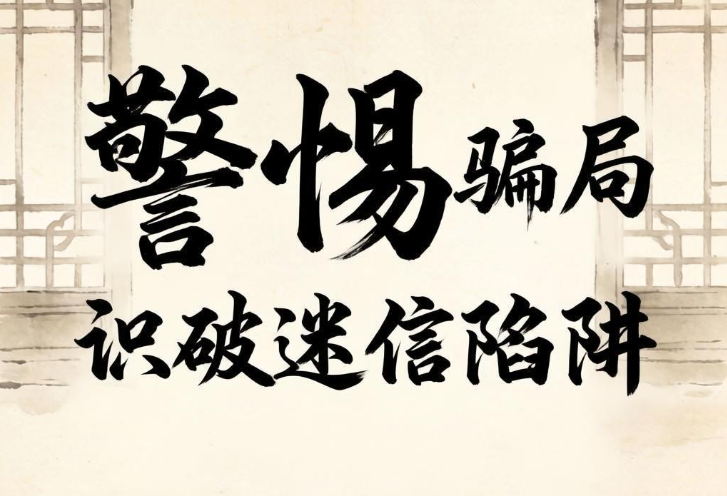 警惕骗局
识破迷信陷阱